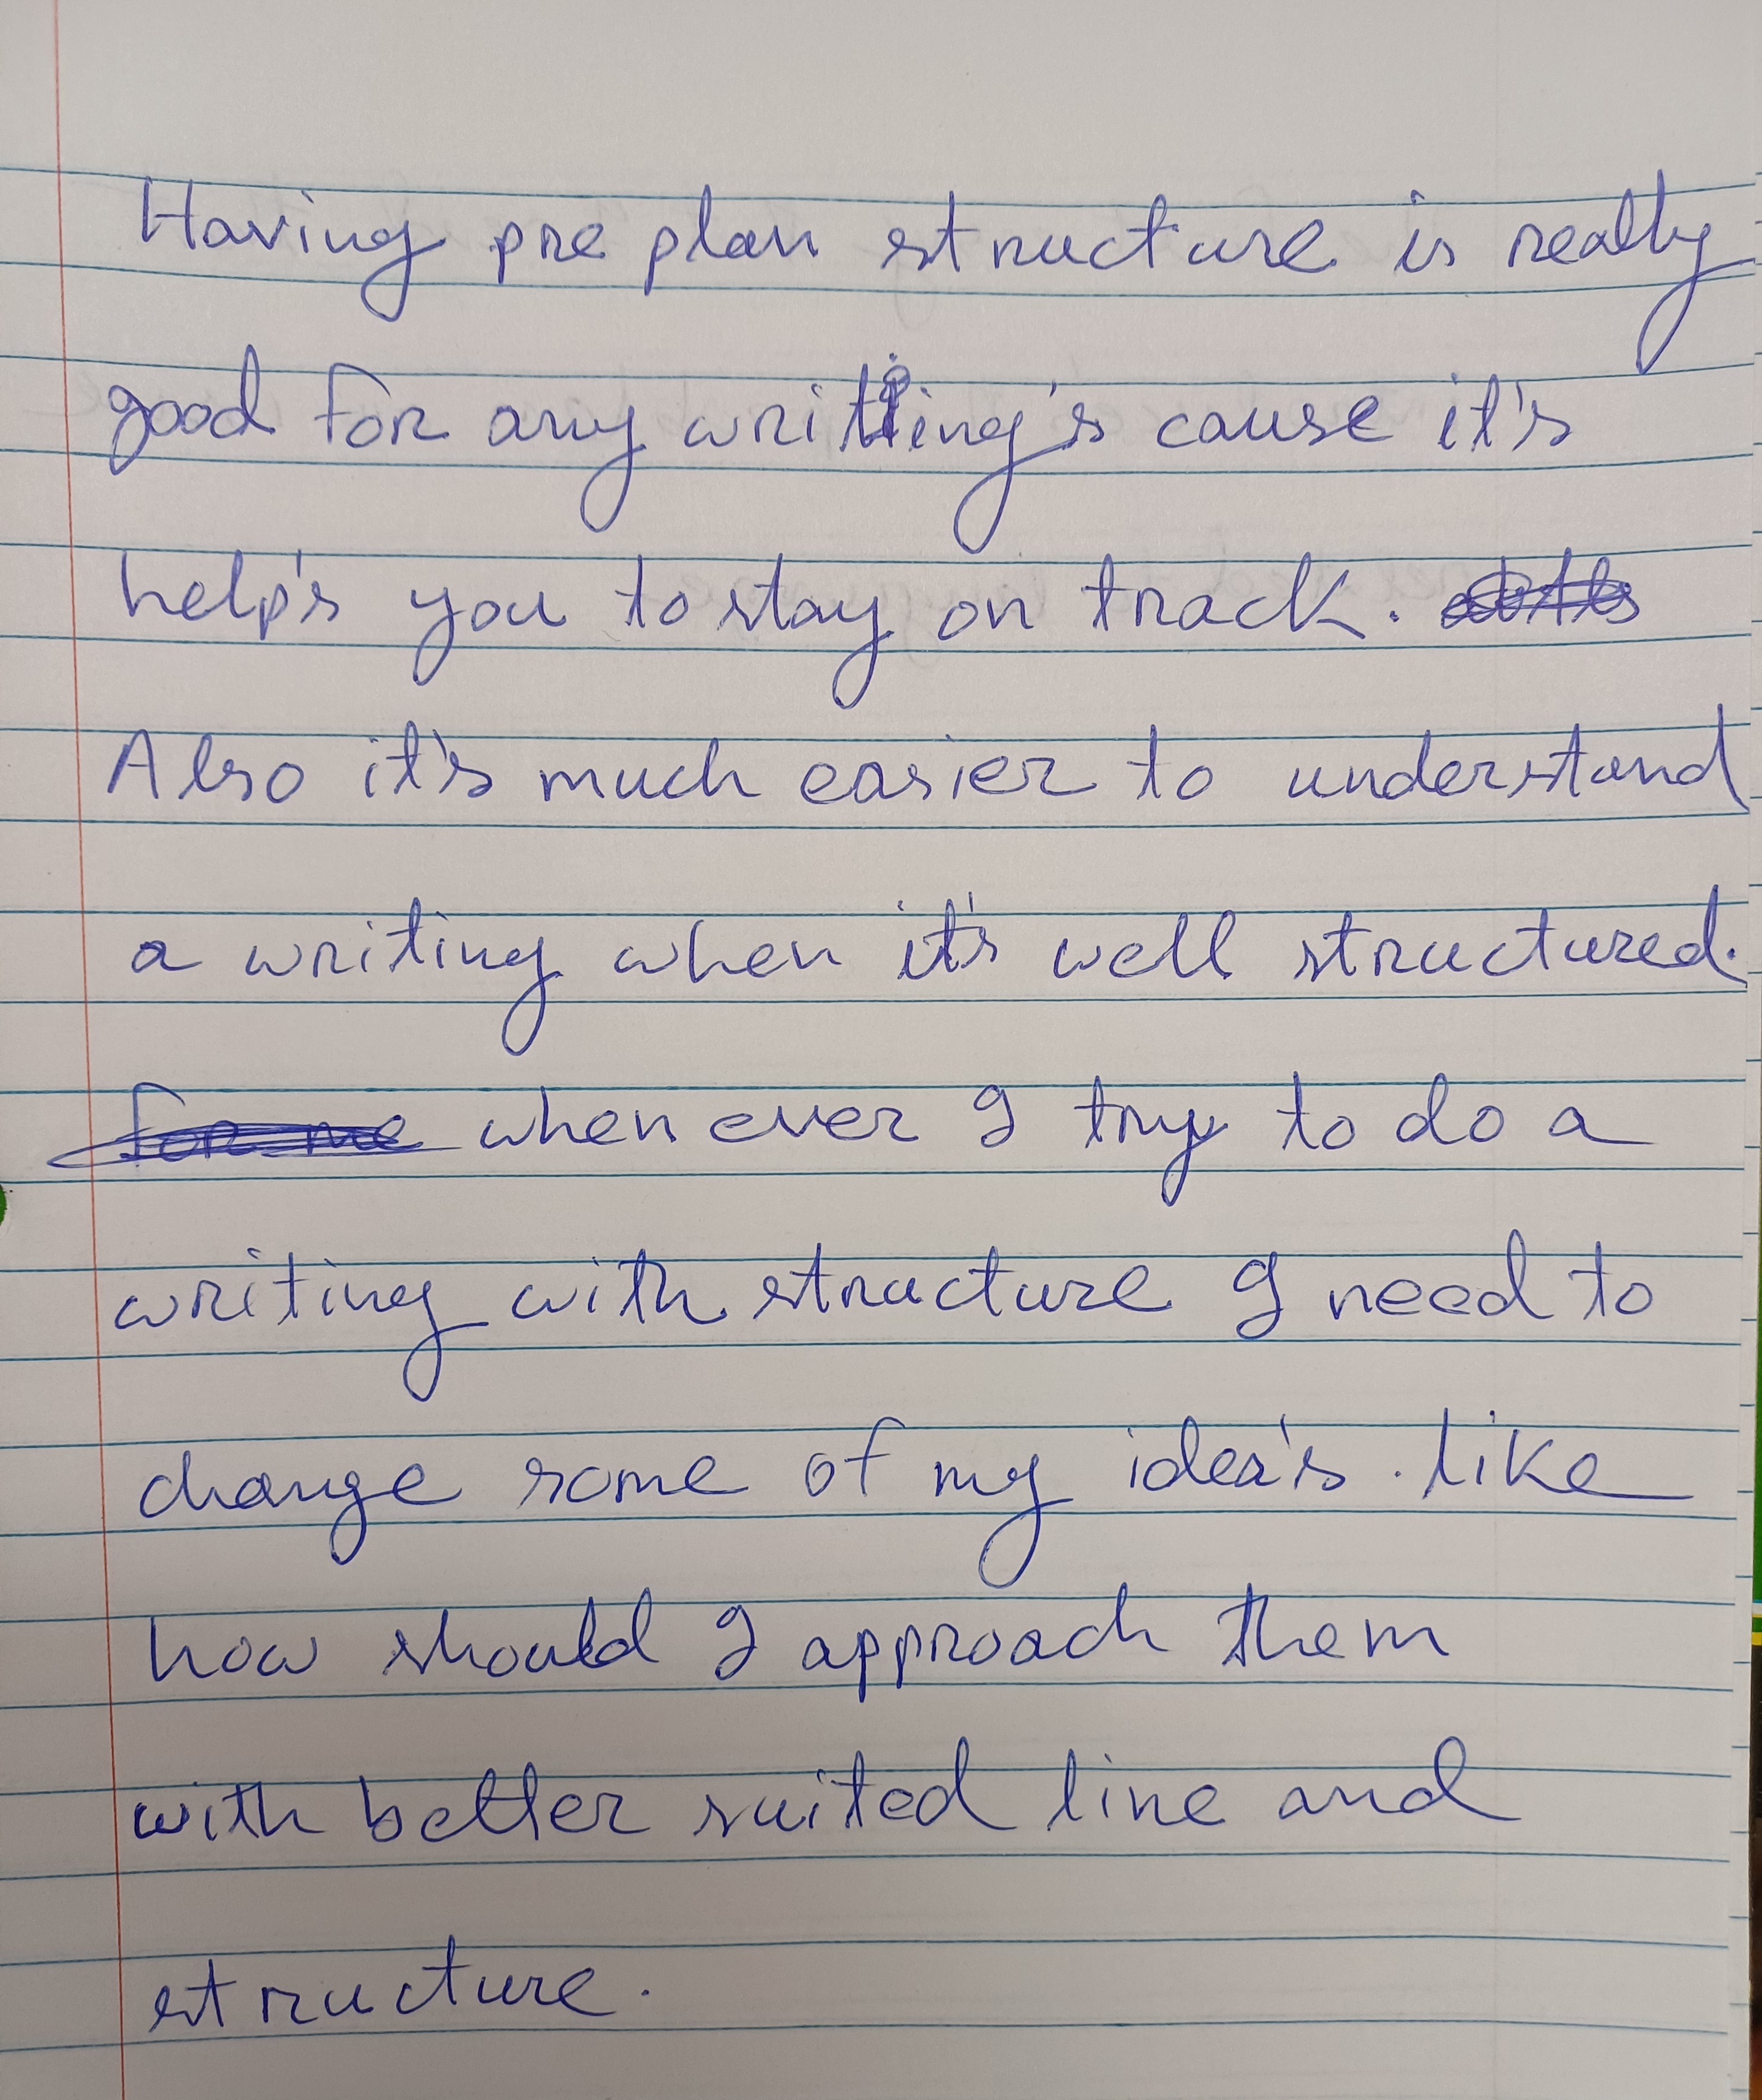 Having pre plan structure is really
good for any writing's cause it's
help's you to stay on track.
Also it's much easier to understand
a writing when it's well structured.
for me when ever I try to do a
writing with structure I need to
change some of my idea's. like
how should I approach them
with better suited line and
structure.